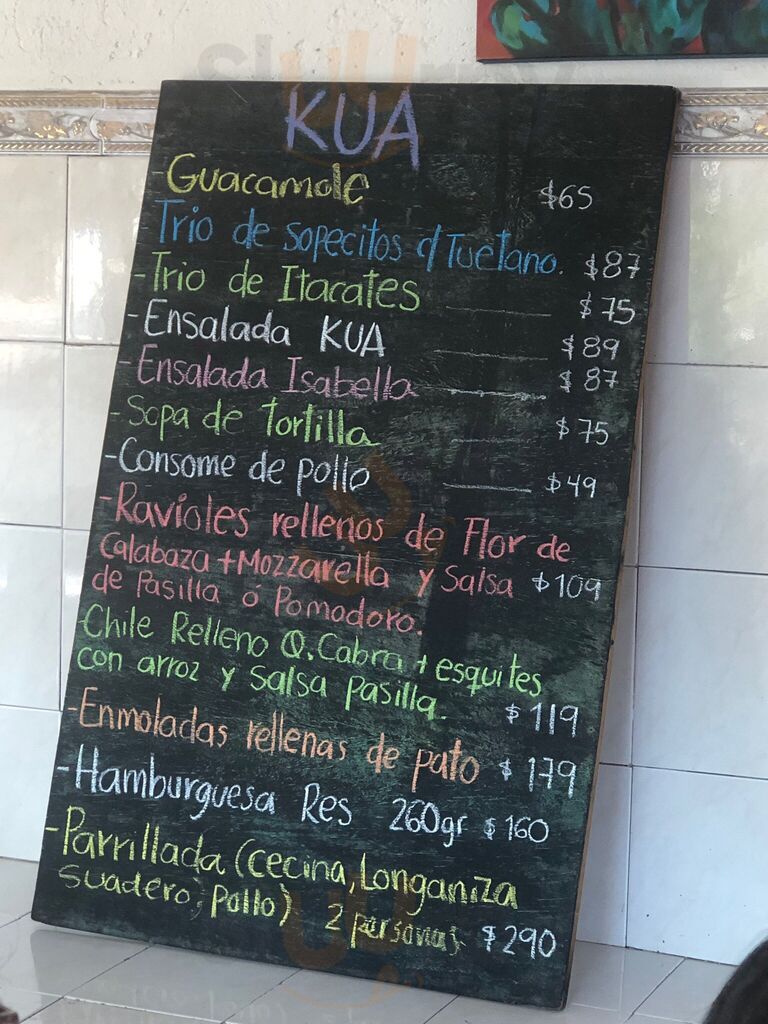 KUA
-Guacamole $65
Trio de sopecitos d/Tuetano. $87
-Trio de Itacates $75
-Ensalada KUA $89
-Ensalada Isabella $87
-Sopa de tortilla $75
-Consome de pollo $49
-Ravioles rellenos de Flor de
Calabaza + Mozzarella y Salsa $109
de Pasilla ó Pomodoro.
-Chile Relleno Q. Cabra + esquites
con arroz y Salsa Pasilla. $119
-Enmoladas rellenas de pato $179
-Hamburguesa Res 260gr $160
-Parrillada (cecina, Longaniza
suadero, pollo) 2 personas $290